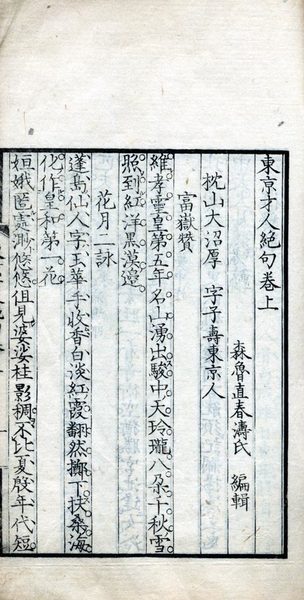 東京才人絶句卷上
森魯直春濤氏 編輯
枕山大沼厚 字子壽東京人
富嶽贊
維孝靈皇第五年名山湧出駿中天玲瓏八朶千秋雪
照到紅洋黑漠邉
花月二詠
蓬島仙人字玉華手收香白淡紅霞翻然擲下扶桑海
化作皇和第一花
姮娥匿處渺悠悠但見婆娑桂影稠不比夏殷年代短